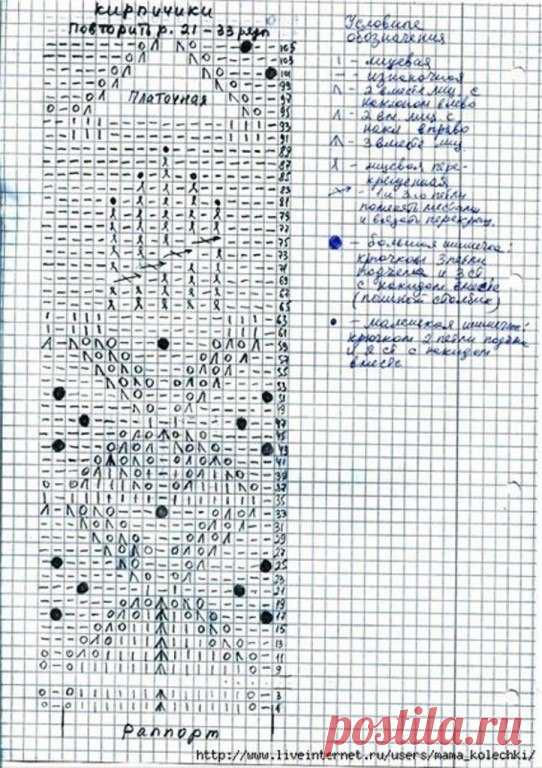 Кирпичики
повторить р. 21 - 33 ряд
Платочная
105
103
101
99
97
95
93
91
89
87
85
83
81
79
77
75
73
71
69
67
65
63
61
59
57
55
53
51
49
47
45
43
41
39
37
35
33
31
29
27
25
23
21
19
17
15
13
11
9
3
1
Раппорт
Условные
обозначения
- лицевая
- изнаночная
- 2 вместе лиц с
наклоном влево
- 2 вм лиц с
накл вправо
- 3 вместе лиц.
- лицевая пере-
крещенная
- 1 и 3ю петлю
поменять местами
и вязать перекрещ.
- большая шишечка:
крючком 3 петли
подъема и 3 ст
с накидом вместе
(пышный столбик)
- маленькая шишечка:
крючком 2 петли подъема
и 2 ст с накидом
вместе
postila.ru
http://www.liveinternet.ru/users/mama_kolechki/